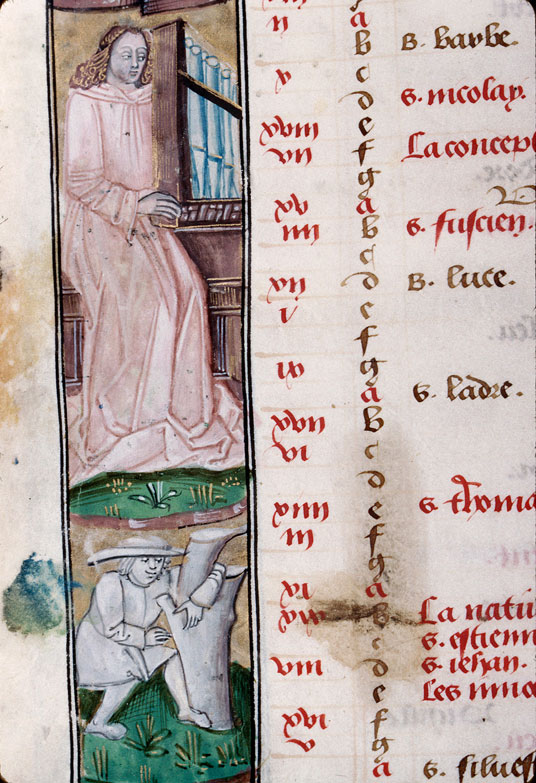 ii a
b B. barbe.
x c
d S. nicolay.
xviii e
vii f La concep
g
xv a
iiii b S. fuscien.
c
xii d B. luce.
i e
f
ix g
a S. ladre.
xvii b
vi c
d
xiiii e S. thoma
iii f
g
xi a
xix b La nati
c S. estienn
viii d S. iehan.
e Les inno
xvi f
v g
a S. silues